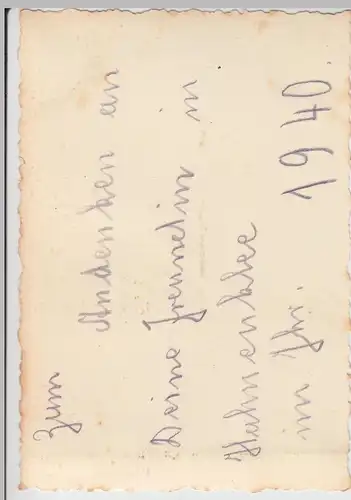 Zum
Andenken an
Deine Freundin in
Hahnenklee
im Jhr. 1940.